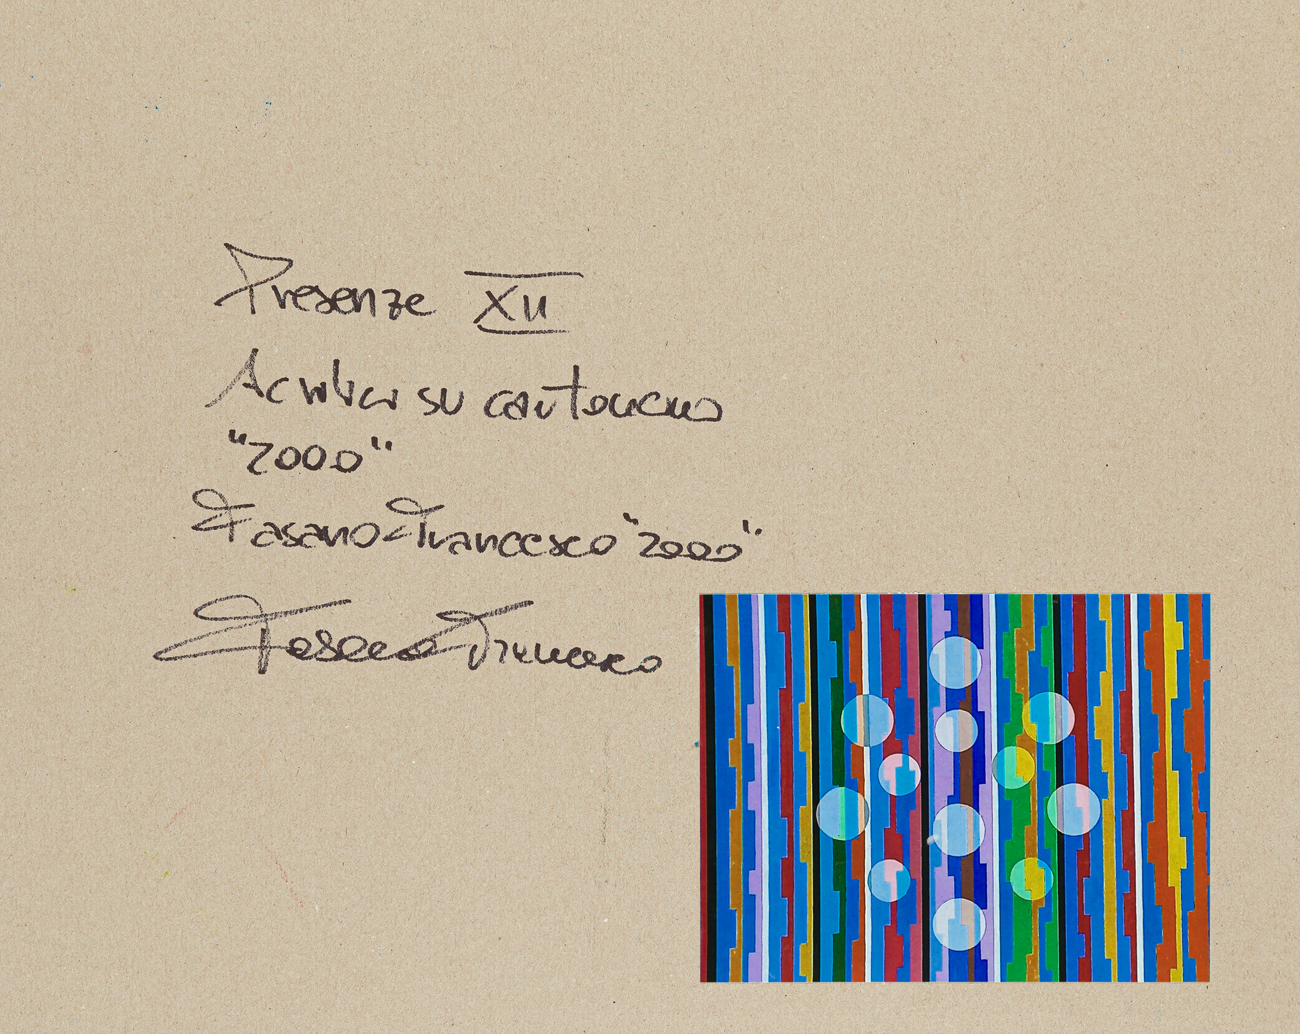 Presenze XII
Acrilico su cartoncino
"2000"
Fasano Francesco "2000"
Fasano Francesco